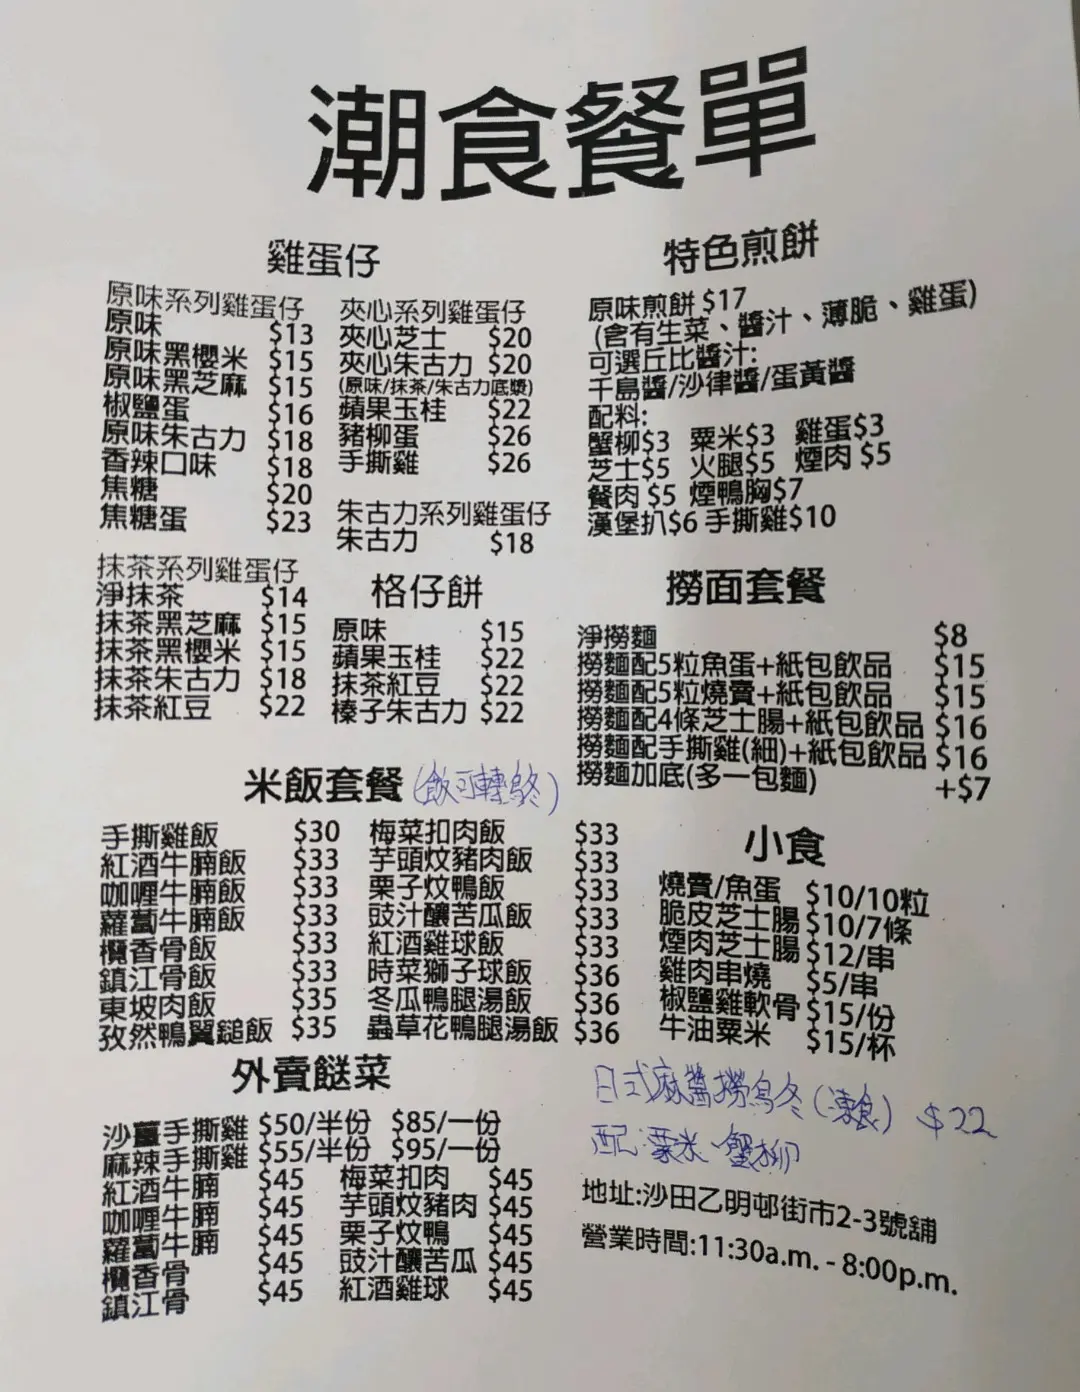 潮食餐單
雞蛋仔
原味系列雞蛋仔
原味 $13
原味黑櫻米 $15
原味黑芝麻 $15
椒鹽蛋 $16
原味朱古力 $18
香辣口味 $18
焦糖 $20
焦糖蛋 $23
抹茶系列雞蛋仔
淨抹茶 $14
抹茶黑芝麻 $15
抹茶黑櫻米 $15
抹茶朱古力 $18
抹茶紅豆 $22
夾心系列雞蛋仔
夾心芝士 $20
夾心朱古力 $20
(原味/抹茶/朱古力底漿)
蘋果玉桂 $22
豬柳蛋 $26
手撕雞 $26
朱古力系列雞蛋仔
朱古力 $18
格仔餅
原味 $15
蘋果玉桂 $22
抹茶紅豆 $22
榛子朱古力 $22
特色煎餅
原味煎餅 $17
(含有生菜、醬汁、薄脆、雞蛋)
可選丘比醬汁:
千島醬/沙律醬/蛋黃醬
配料:
蟹柳$3 粟米$3 雞蛋$3
芝士$5 火腿$5 煙肉 $5
餐肉 $5 煙鴨胸$7
漢堡扒$6 手撕雞$10
撈面套餐
淨撈麵 $8
撈麵配5粒魚蛋+紙包飲品 $15
撈麵配5粒燒賣+紙包飲品 $15
撈麵配4條芝士腸+紙包飲品 $16
撈麵配手撕雞(細)+紙包飲品 $16
撈麵加底(多一包麵) +$7
米飯套餐 (飯可轉烏冬)
手撕雞飯 $30
紅酒牛腩飯 $33
咖喱牛腩飯 $33
蘿蔔牛腩飯 $33
欖香骨飯 $33
鎮江骨飯 $33
東坡肉飯 $35
孜然鴨翼鎚飯 $35
梅菜扣肉飯 $33
芋頭炆豬肉飯 $33
栗子炆鴨飯 $33
豉汁釀苦瓜飯 $33
紅酒雞球飯 $33
時菜獅子球飯 $36
冬瓜鴨腿湯飯 $36
蟲草花鴨腿湯飯 $36
小食
燒賣/魚蛋 $10/10粒
脆皮芝士腸 $10/7條
煙肉芝士腸 $12/串
雞肉串燒 $5/串
椒鹽雞軟骨 $15/份
牛油粟米 $15/杯
外賣餸菜
沙薑手撕雞 $50/半份 $85/一份
麻辣手撕雞 $55/半份 $95/一份
紅酒牛腩 $45
咖喱牛腩 $45
蘿蔔牛腩 $45
欖香骨 $45
鎮江骨 $45
梅菜扣肉 $45
芋頭炆豬肉 $45
栗子炆鴨 $45
豉汁釀苦瓜 $45
紅酒雞球 $45
日式麻醬撈烏冬(凍食) $22
配:粟米、蟹柳
地址:沙田乙明邨街市2-3號舖
營業時間:11:30a.m. - 8:00p.m.